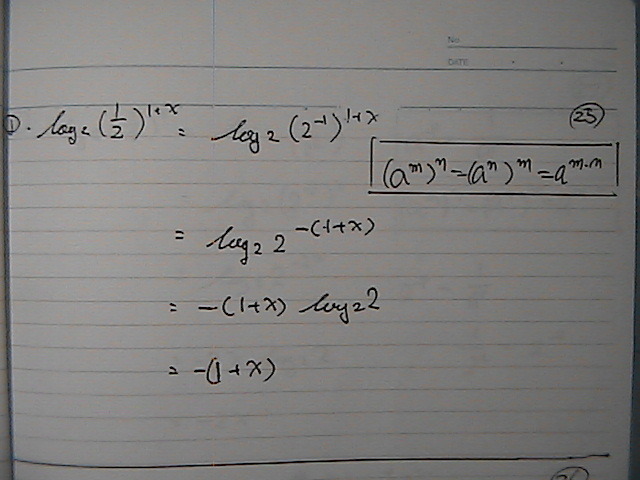 No
DATE
①. log₂(1/2)^(1+x) = log₂(2⁻¹)^(1+x)
(25)
(a^m)^n = (a^n)^m = a^(m·n)
= log₂ 2^(-(1+x))
= -(1+x) log₂2
= -(1+x)